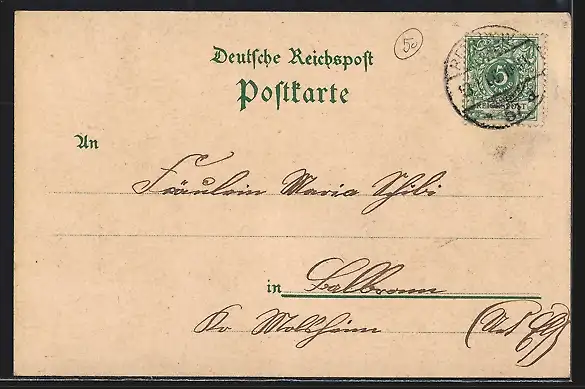 50
Deutsche Reichspost
Postkarte
5
REICHSPOST
An
Fräulein Maria Schibi
in Balbronn
Kr Molsheim (Uts Els)